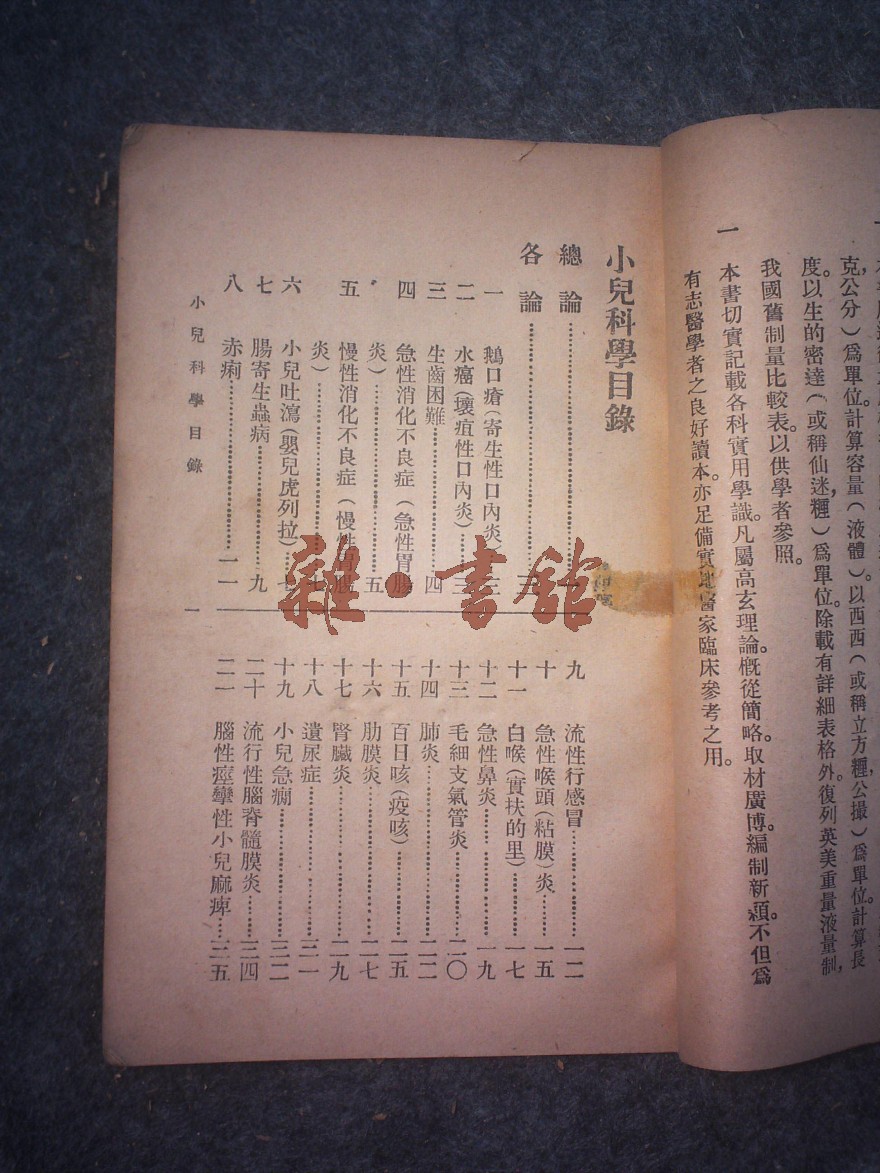 克，公分）爲單位。計算容量（液體）。以西西（或稱立方糎，公撮）爲單位。計算長
度。以生的密達（或稱仙迷，糎）爲單位。除載有詳細表格外。復列英美重量液量制，
我國舊制量比較表。以供學者參照。
一　本書切實記載各科實用學識。凡屬高玄理論。概從簡略。取材廣博。編制新穎。不但爲
有志醫學者之良好讀本。亦足備實地醫家臨床參考之用。
小兒科學目錄
總論……一
各論……三
一　鵝口瘡（寄生性口內炎）……三
二　水癌（壞疽性口內炎）……三
三　生齒困難……四
四　急性消化不良症（急性胃腸
炎）……五
五　慢性消化不良症（慢性胃腸
炎）……七
六　小兒吐瀉（嬰兒虎列拉）……七
七　腸寄生蟲病……九
八　赤痢……一一
九　流性行感冒……一二
十　急性喉頭（粘膜）炎……一五
十一　白喉（實扶的里）……一七
十二　急性鼻炎……一九
十三　毛細支氣管炎……二〇
十四　肺炎……二二
十五　百日咳（疫咳）……二五
十六　肋膜炎……二七
十七　腎臟炎……二九
十八　遺尿症……三一
十九　小兒急癎……三二
二十　流行性腦脊髓膜炎……三四
二一　腦性痙攣性小兒麻痺……三五
小兒科學目錄
一
雜·書館